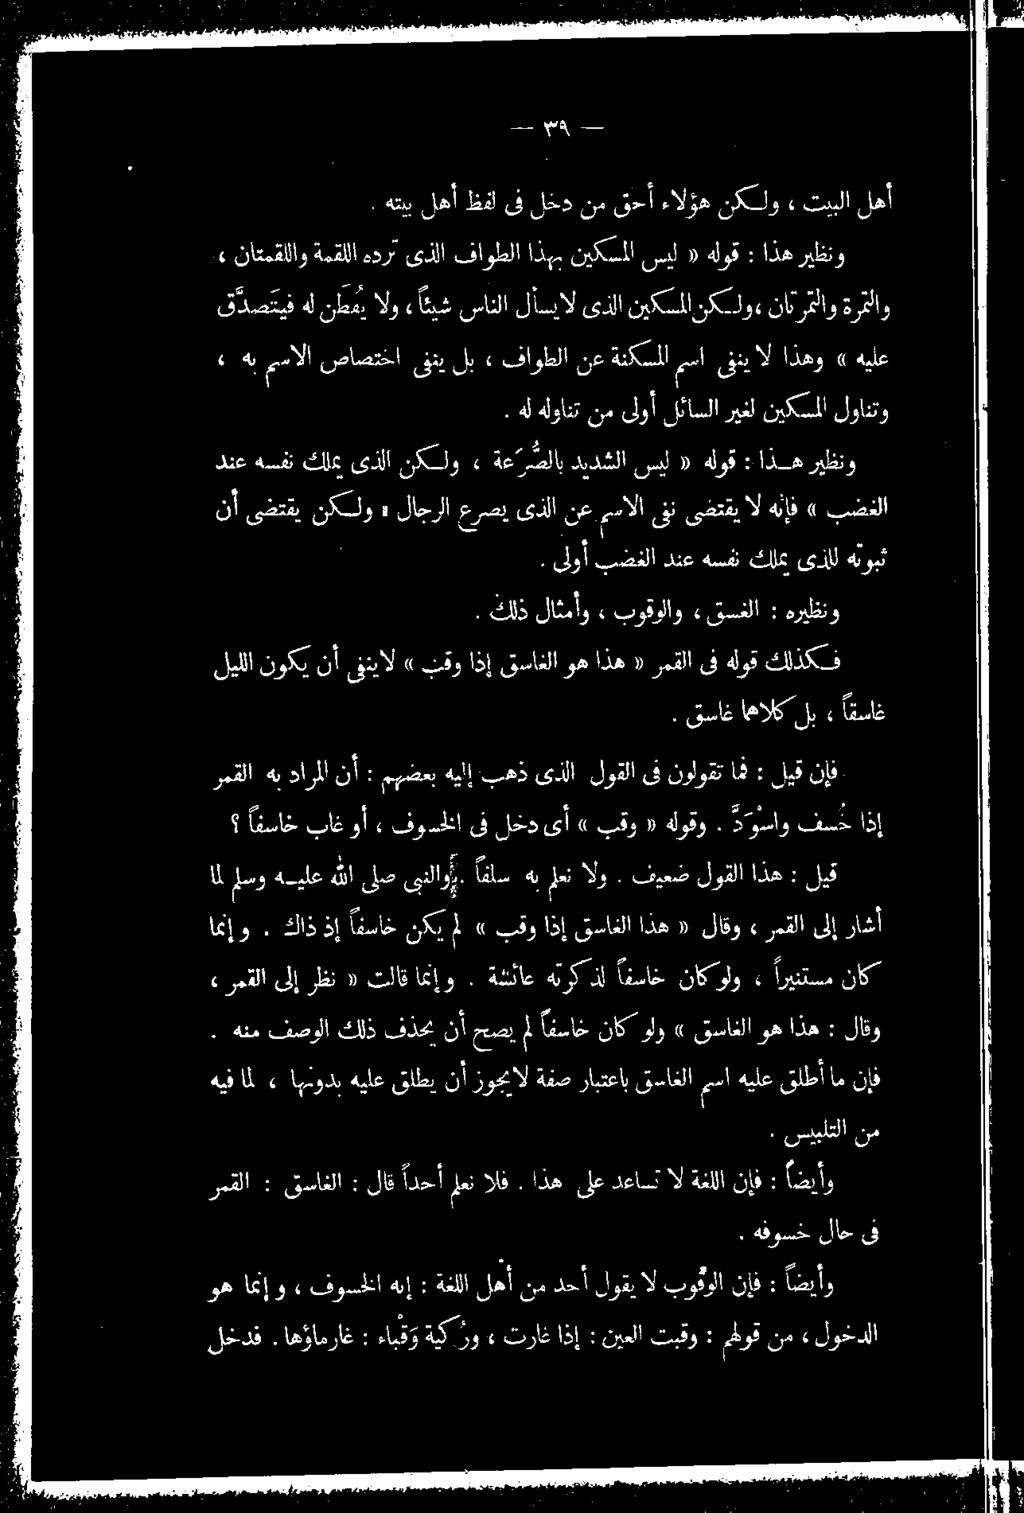 — ٣٩ —
أهل البيت ، ولكن هؤلاء أحق من دخل فى لفظ أهل بيته .
ونظير هذا : قوله « ليس المسكين بهذا الطواف الذى ترده اللقمة واللقمتان ،
والتمرة والتمرتان ، ولكن المسكين الذى لا يسأل الناس شيئاً ، ولا يُفْطَن له فيتَصدَّق
عليه » وهذا لا ينفى اسم المسكنة عن الطواف ، بل ينفى اختصاص الاسم به ،
وتناول المسكين لغير السائل أولى من تناوله له .
ونظير هذا : قوله « ليس الشديد بالصُّرَعة ، ولكن الذى يملك نفسه عند
الغضب » فإنه لا يقتضى نفى الاسم عن الذى يصرع الرجال ، ولكن يقتضى أن
ثبوته للذى يملك نفسه عند الغضب أولى .
ونظيره : الغسق ، والوقوب ، وأمثال ذلك .
فكذلك قوله فى القمر « هذا هو الغاسق إذا وقب » لا ينفى أن يكون الليل
غاسقاً ، بل كلاهما غاسق .
فإن قيل : فما تقولون فى القول الذى ذهب إليه بعضهم : أن المراد به القمر
إذا خُسف واسْوَدَّ . وقوله « وقب » أى دخل فى الخسوف ، أو غاب خاسفاً ؟
قيل : هذا القول ضعيف . ولا نعلم به سلفاً . والنبى صلى الله عليه وسلم لما
أشار إلى القمر ، وقال « هذا الغاسق إذا وقب » لم يكن خاسفاً إذ ذاك . وإنما
كان مستنيراً ، ولو كان خاسفاً لذكرته عائشة . وإنما قالت « نظر إلى القمر ،
وقال : هذا هو الغاسق » ولو كان خاسفاً لم يصح أن يحذف ذلك الوصف منه .
فإن ما أطلق عليه اسم الغاسق باعتبار صفة لا يجوز أن يطلق عليه بدونها ، لما فيه
من التلبيس .
وأيضاً : فإن اللغة لا تساعد على هذا . فلا نعلم أحداً قال : الغاسق : القمر
فى حال خسوفه .
وأيضاً : فإن الوقوب لا يقول أحد من أهل اللغة : إنه الخسوف ، وإنما هو
الدخول ، من قولهم : وقبت العين : إذا غارت ، ورُكية وَقْباء : غار ماؤها . فدخل